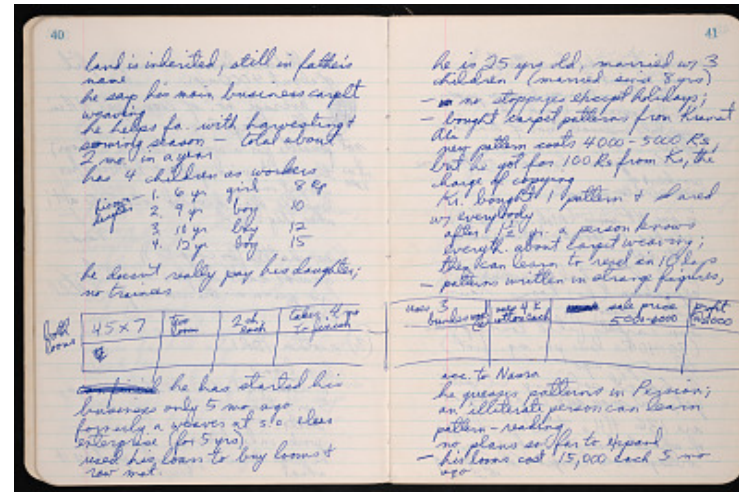 40
land is inherited, still in father's
name
he says his main business carpet
weaving
he helps fa. with harvesting +
sowing season – total about
2 mo. in a year
has 4 children as workers
1. 6 yr girl 8 Rp
2. 9 yr boy 10
3. 10 yr boy 12
4. 12 yr boy 15
he doesn't really pay his daughter;
no trainees
Both
looms
45 x 7
two
loom
2 ch.
each
takes 4 mo
to finish
he has started his
business only 5 mo. ago
formerly a weaver at s.o. elses
enterprise (for 5 yrs)
used his loan to buy looms +
raw mat.
41
he is 25 yrs old, married w/ 3
children (married since 8 yrs)
– no stoppages except holidays;
– bought carpet patterns from
Ali
new pattern costs 4000 – 5000 Rs,
but he got for 100 Rs from Kr, the
charge of copying
Kr. bought 1 pattern + shared
w/ everybody
after 1½ yr. a person knows
everyth. about carpet weaving;
then can learn to read in 10 days
– patterns written in strange figures,
uses 3
bundles wool
uses 4 k
cotton each
sale price
5000-6000
profit
acc. to Nasra
he guesses patterns in Persian;
an illiterate person can learn
pattern-reading
no plans so far to expand
– his looms cost 15,000 each 5 mo
ago